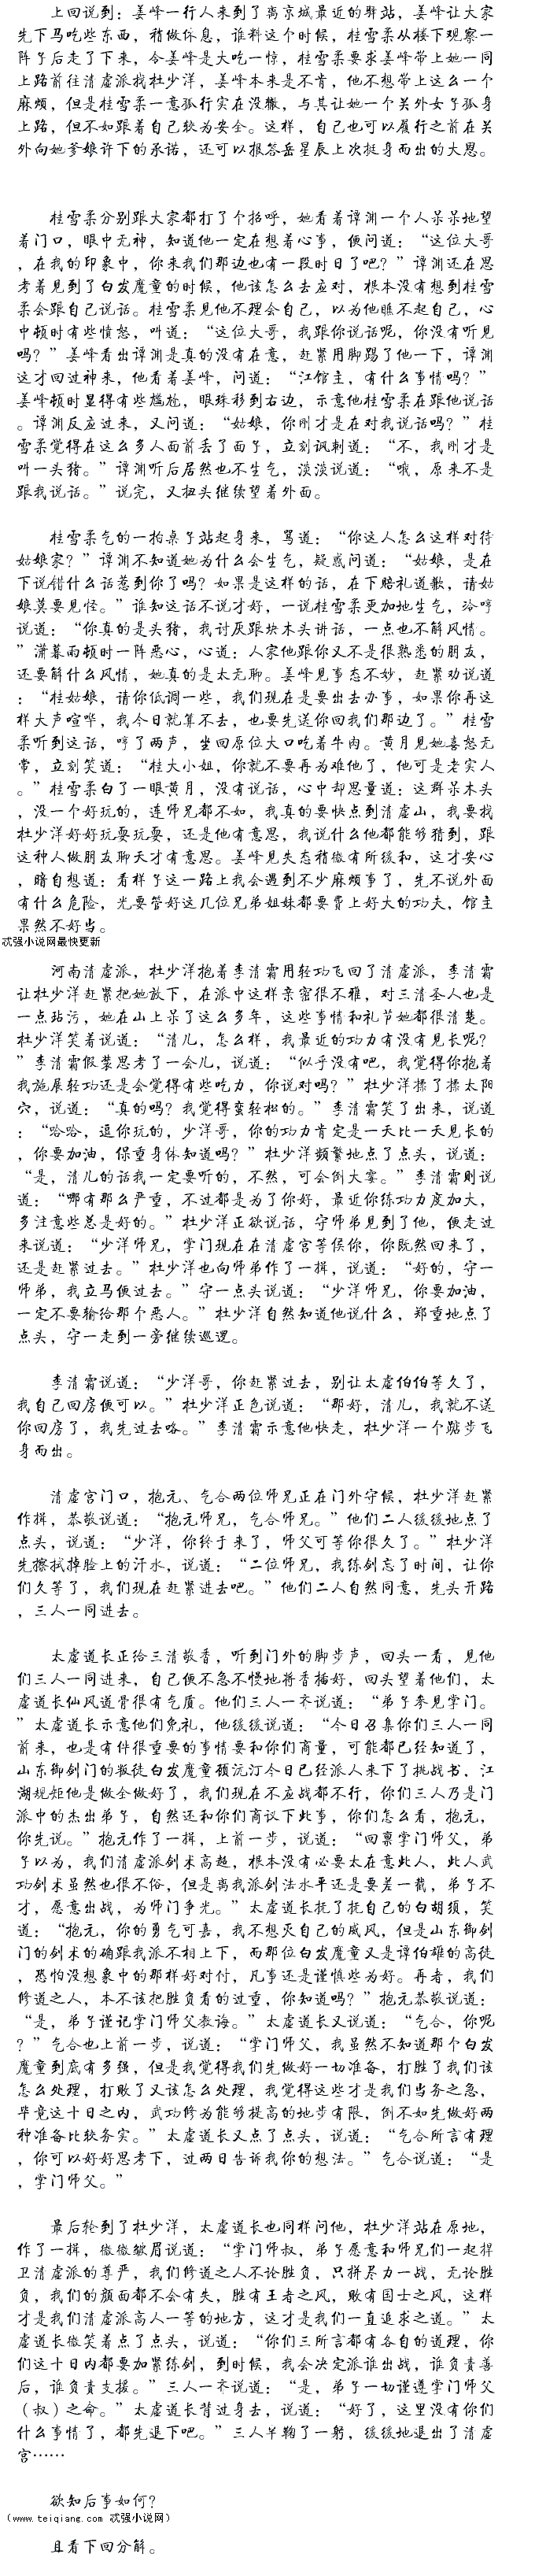 上回说到：姜峰一行人来到了离京城最近的驿站，姜峰让大家
先下马吃些东西，稍做休息，谁料这个时候，桂雪柔从楼下观察一
阵子后走了下来，令姜峰是大吃一惊，桂雪柔要求姜峰带上她一同
上路前往清虚派找杜少洋，姜峰本来是不肯，他不想带上这么一个
麻烦，但是桂雪柔一意孤行实在没辙，与其让她一个关外女子孤身
上路，但不如跟着自己较为安全。这样，自己也可以履行之前在关
外向她爹娘许下的承诺，还可以报答岳星辰上次挺身而出的大恩。
桂雪柔分别跟大家都打了个招呼，她看着谭渊一个人呆呆地望
着门口，眼中无神，知道他一定在想着心事，便问道：“这位大哥
，在我的印象中，你来我们那边也有一段时日了吧？”谭渊还在思
考着见到了白发魔童的时候，他该怎么去应对，根本没有想到桂雪
柔会跟自己说话。桂雪柔见他不理会自己，以为他瞧不起自己，心
中顿时有些愤怒，叫道：“这位大哥，我跟你说话呢，你没有听见
吗？”姜峰看出谭渊是真的没有在意，赶紧用脚踢了他一下，谭渊
这才回过神来，他看着姜峰，问道：“江馆主，有什么事情吗？”
姜峰顿时显得有些尴尬，眼珠移到右边，示意他桂雪柔在跟他说话
。谭渊反应过来，又问道：“姑娘，你刚才是在对我说话吗？”桂
雪柔觉得在这么多人面前丢了面子，立刻讽刺道：“不，我刚才是
叫一头猪。”谭渊听后居然也不生气，淡淡说道：“哦，原来不是
跟我说话。”说完，又扭头继续望着外面。
桂雪柔气的一拍桌子站起身来，骂道：“你这人怎么这样对待
姑娘家？”谭渊不知道她为什么会生气，疑惑问道：“姑娘，是在
下说错什么话惹到你了吗？如果是这样的话，在下赔礼道歉，请姑
娘莫要见怪。”谁知这话不说才好，一说桂雪柔更加地生气，冷哼
说道：“你真的是头猪，我讨厌跟块木头讲话，一点也不解风情。
”潇暮雨顿时一阵恶心，心道：人家他跟你又不是很熟悉的朋友，
还要解什么风情，她真的是太无聊。姜峰见事态不妙，赶紧劝说道
：“桂姑娘，请你低调一些，我们现在是要出去办事，如果你再这
样大声喧哗，我今日就算不去，也要先送你回我们那边了。”桂雪
柔听到这话，哼了两声，坐回原位大口吃着牛肉。黄月见她喜怒无
常，立刻笑道：“桂大小姐，你就不要再为难他了，他可是老实人
。”桂雪柔白了一眼黄月，没有说话，心中却思量道：这群呆木头
，没一个好玩的，连师兄都不如，我真的要快点到清虚山，我要找
杜少洋好好玩耍玩耍，还是他有意思，我说什么他都能够猜到，跟
这种人做朋友聊天才有意思。姜峰见失态稍微有所缓和，这才安心
，暗自想道：看样子这一路上我会遇到不少麻烦事了，先不说外面
有什么危险，光要管好这几位兄弟姐妹都要费上好大的功夫，馆主
果然不好当。
忒强小说网最快更新
河南清虚派，杜少洋抱着李清霜用轻功飞回了清虚派，李清霜
让杜少洋赶紧把她放下，在派中这样亲密很不雅，对三清圣人也是
一点玷污，她在山上呆了这么多年，这些事情和礼节她都很清楚。
杜少洋笑着说道：“清儿，怎么样，我最近的功力有没有见长呢？
”李清霜假装思考了一会儿，说道：“似乎没有吧，我觉得你抱着
我施展轻功还是会觉得有些吃力，你说对吗？”杜少洋揉了揉太阳
穴，说道：“真的吗？我觉得蛮轻松的。”李清霜笑了出来，说道
：“哈哈，逗你玩的，少洋哥，你的功力肯定是一天比一天见长的
，你要加油，保重身体知道吗？”杜少洋频繁地点了点头，说道：
“是，清儿的话我一定要听的，不然，可会倒大霉。”李清霜则说
道：“哪有那么严重，不过都是为了你好，最近你练功力度加大，
多注意些总是好的。”杜少洋正欲说话，守师弟见到了他，便走过
来说道：“少洋师兄，掌门现在在清虚宫等侯你，你既然回来了，
还是赶紧过去。”杜少洋也向师弟作了一揖，说道：“好的，守一
师弟，我立马便过去。”守一点头说道：“少洋师兄，你要加油，
一定不要输给那个恶人。”杜少洋自然知道他说什么，郑重地点了
点头，守一走到一旁继续巡逻。
李清霜说道：“少洋哥，你赶紧过去，别让太虚伯伯等久了，
我自己回房便可以。”杜少洋正色说道：“那好，清儿，我就不送
你回房了，我先过去咯。”李清霜示意他快走，杜少洋一个踮步飞
身而出。
清虚宫门口，抱元、气合两位师兄正在门外守候，杜少洋赶紧
作揖，恭敬说道：“抱元师兄，气合师兄。”他们二人缓缓地点了
点头，说道：“少洋，你终于来了，师父可等你很久了。”杜少洋
先擦拭掉脸上的汗水，说道：“二位师兄，我练剑忘了时间，让你
们久等了，我们现在赶紧进去吧。”他们二人自然同意，先头开路
，三人一同进去。
太虚道长正给三清敬香，听到门外的脚步声，回头一看，见他
们三人一同进来，自己便不急不慢地将香插好，回头望着他们，太
虚道长仙风道骨很有气质。他们三人一齐说道：“弟子参见掌门。
”太虚道长示意他们免礼，他缓缓说道：“今日召集你们三人一同
前来，也是有件很重要的事情要和你们商量，可能都已经知道了，
山东御剑门的叛徒白发魔童顾沅汀今日已经派人来下了挑战书，江
湖规矩他是做全做好了，我们现在不应战都不行，你们三人乃是门
派中的杰出弟子，自然还和你们商议下此事，你们怎么看，抱元，
你先说。”抱元作了一揖，上前一步，说道：“回禀掌门师父，弟
子以为，我们清虚派剑术高超，根本没有必要太在意此人，此人武
功剑术虽然也很不俗，但是离我派剑法水平还是要差一截，弟子不
才，愿意出战，为师门争光。”太虚道长抚了抚自己的白胡须，笑
道：“抱元，你的勇气可嘉，我不想灭自己的威风，但是山东御剑
门的剑术的确跟我派不相上下，而那位白发魔童又是谭伯雄的高徒
，恐怕没想象中的那样好对付，凡事还是谨慎些为好。再者，我们
修道之人，本不该把胜负看的过重，你知道吗？”抱元恭敬说道：
“是，弟子谨记掌门师父教诲。”太虚道长又说道：“气合，你呢
？”气合也上前一步，说道：“掌门师父，我虽然不知道那个白发
魔童到底有多强，但是我觉得我们先做好一切准备，打胜了我们该
怎么处理，打败了又该怎么处理，我觉得这些才是我们当务之急，
毕竟这十日之内，武功修为能够提高的地步有限，倒不如先做好两
种准备比较务实。”太虚道长又点了点头，说道：“气合所言有理
，你可以好好思考下，过两日告诉我你的想法。”气合说道：“是
，掌门师父。”
最后轮到了杜少洋，太虚道长也同样问他，杜少洋站在原地，
作了一揖，微微皱眉说道：“掌门师叔，弟子愿意和师兄们一起捍
卫清虚派的尊严，我们修道之人不论胜负，只拼尽力一战，无论胜
负，我们的颜面都不会有失，胜有王者之风，败有国士之风，这样
才是我们清虚派高人一等的地方，这才是我们一直追求之道。”太
虚道长微笑着点了点头，说道：“你们三所言都有各自的道理，你
们这十日内都要加紧练剑，到时候，我会决定派谁出战，谁负责善
后，谁负责支援。”三人一齐说道：“是，弟子一切谨遵掌门师父
（叔）之命。”太虚道长背过身去，说道：“好了，这里没有你们
什么事情了，都先退下吧。”三人早鞠了一躬，缓缓地退出了清虚
宫……
欲知后事如何？
（www.teiqiang.com 忒强小说网）
且看下回分解。